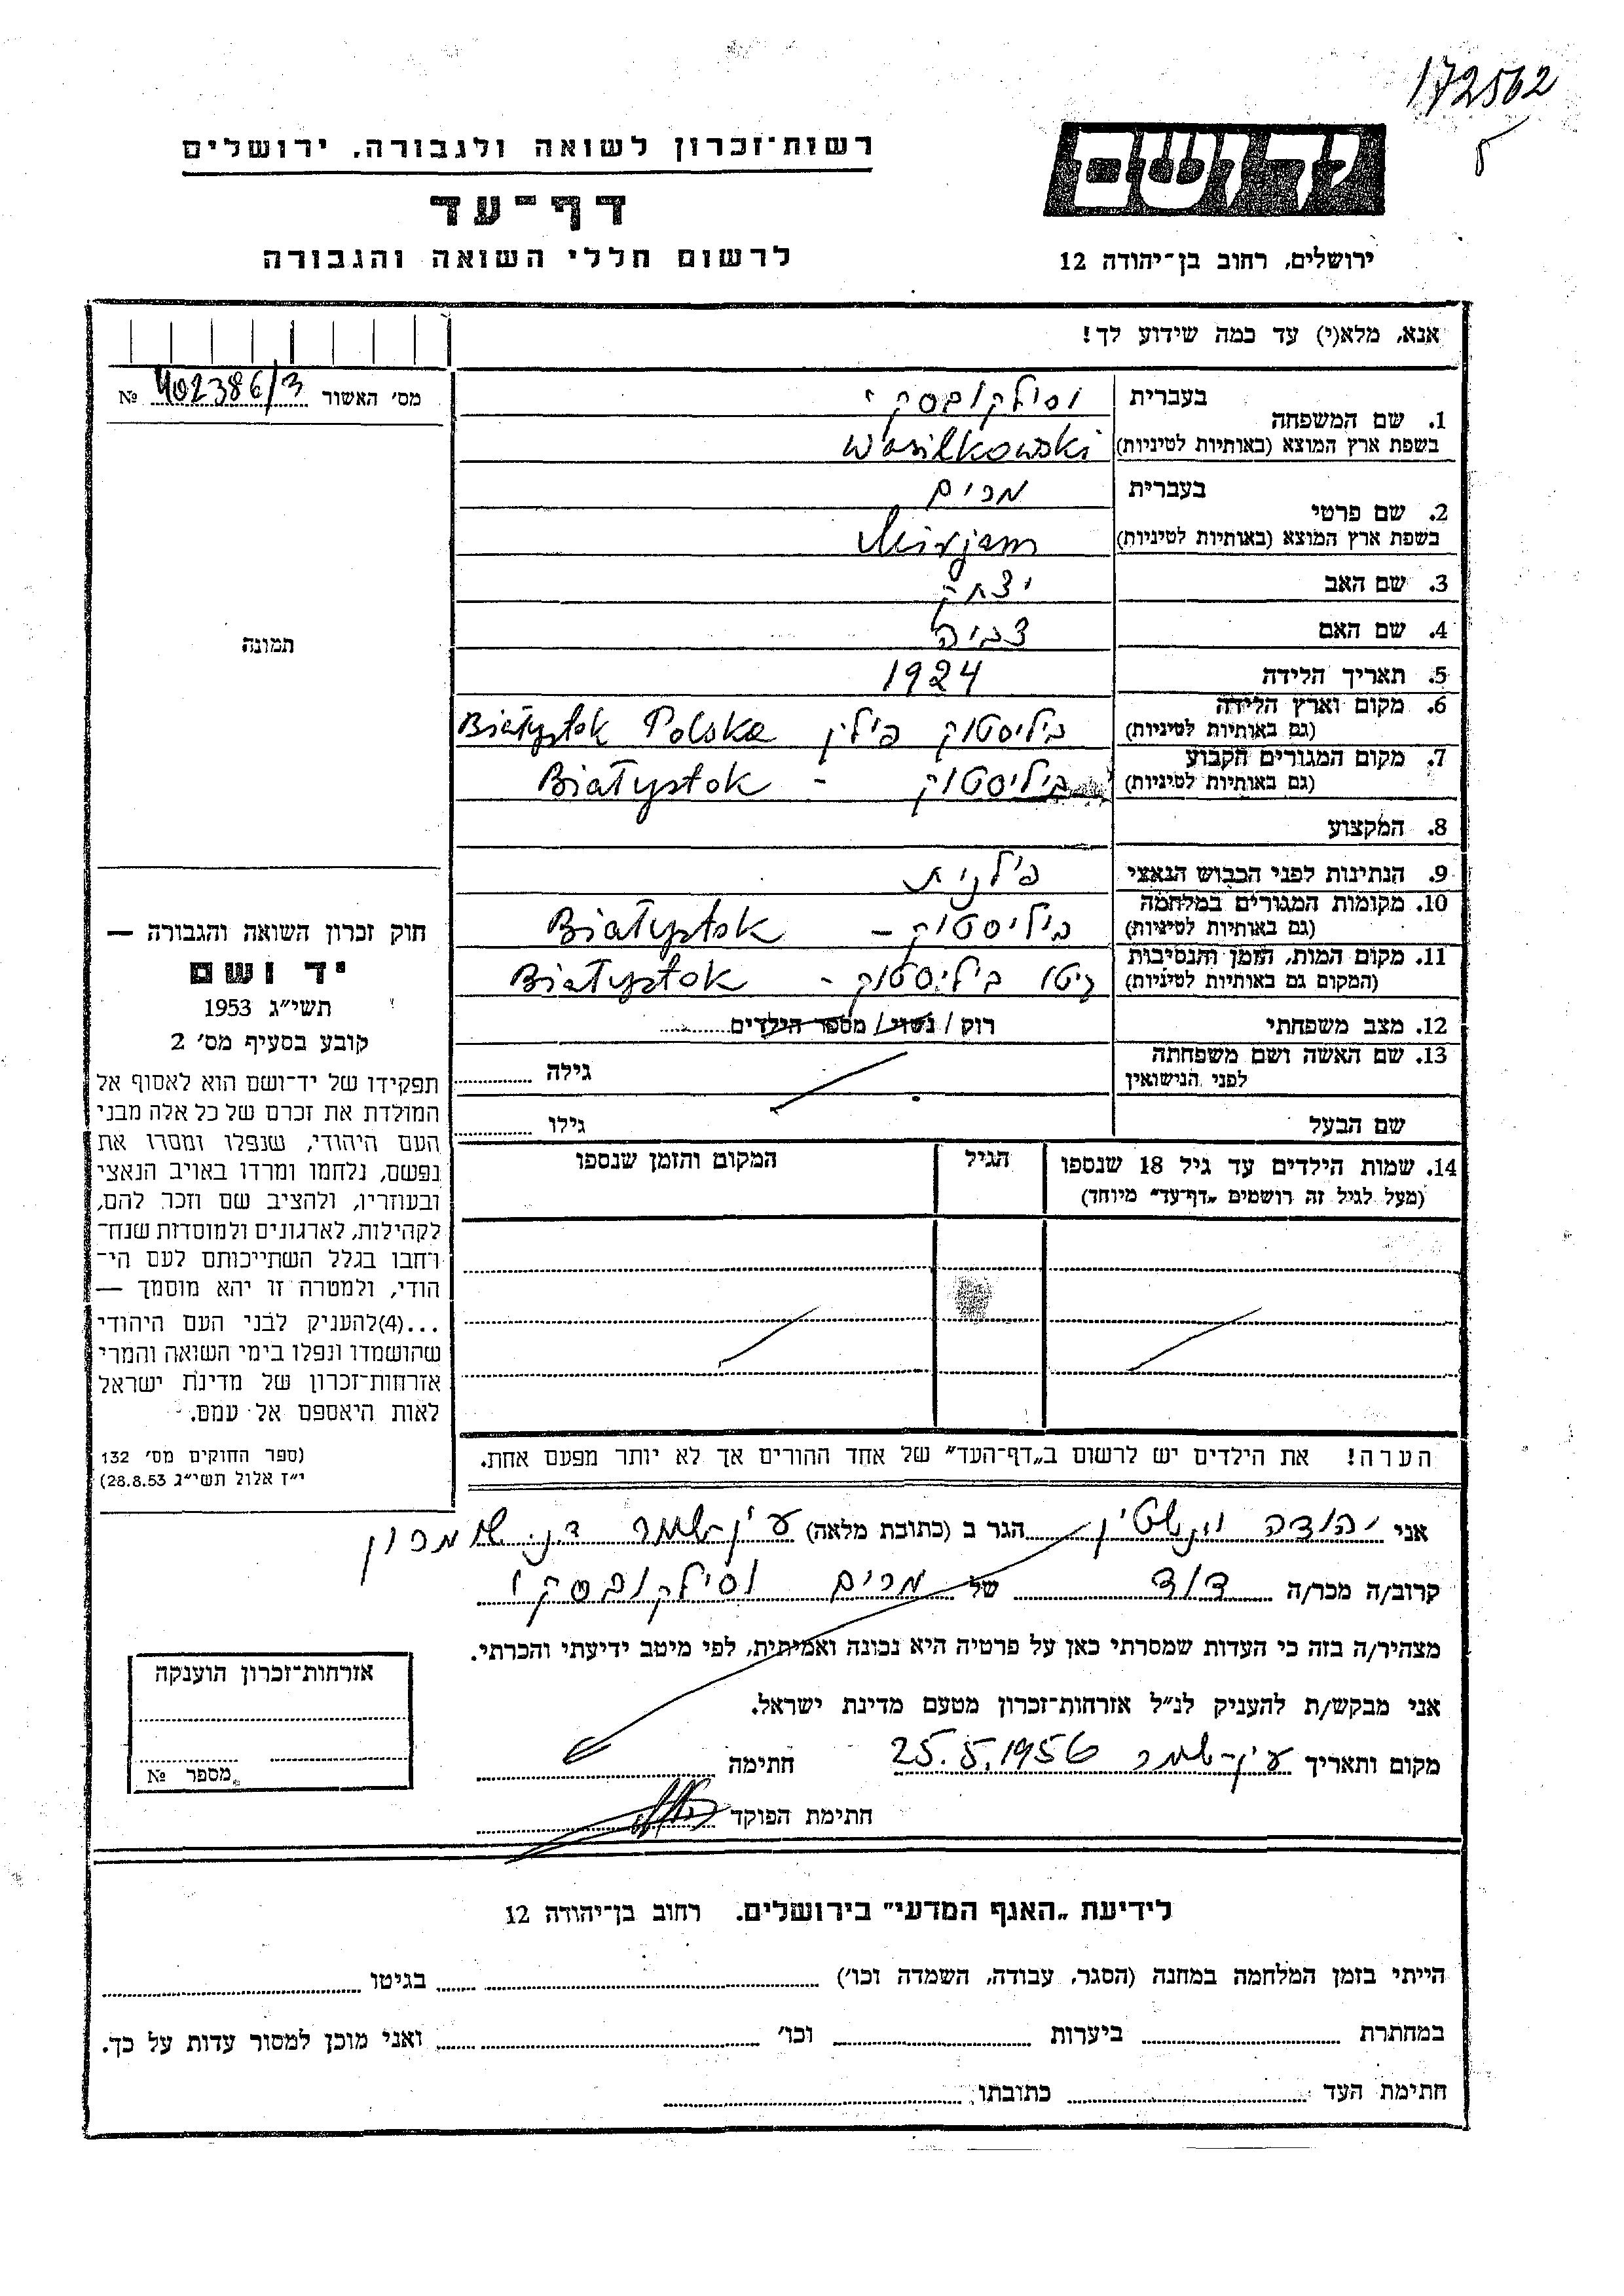 172562
רשות־זכרון לשואה ולגבורה, ירושלים
דף־עד
לרשום חללי השואה והגבורה
ידושם
ירושלים, רחוב בן־יהודה 12
אנא, מלא(י) עד כמה שידוע לך!
מס׳ האשור 402386/3 №
1. שם המשפחה
בעברית וסילקובסקי
בשפת ארץ המוצא (באותיות לטיניות) Wasilkowski
2. שם פרטי
בעברית מרים
בשפת ארץ המוצא (באותיות לטיניות) Mirjam
3. שם האב יצחק
4. שם האם צביה
5. תאריך הלידה 1924
6. מקום וארץ הלידה (גם באותיות לטיניות) ביליסטוק פולין Białystok Polska
7. מקום המגורים הקבוע (גם באותיות לטיניות) ביליסטוק - Białystok
8. המקצוע
9. הנתינות לפני הכבוש הנאצי פולנית
10. מקומות המגורים במלחמה (גם באותיות לטיניות) ביליסטוק - Białystok
11. מקום המות, הזמן והנסיבות (המקום גם באותיות לטיניות) גיטו ביליסטוק - Białystok
12. מצב משפחתי רוק / נשוי / מספר הילדים
13. שם האשה ושם משפחתה לפני הנישואין גילה
שם הבעל גילו
14. שמות הילדים עד גיל 18 שנספו הגיל המקום והזמן שנספו
(מעל לגיל זה רושמים „דף־עד" מיוחד)
הערה! את הילדים יש לרשום ב„דף־העד" של אחד ההורים אך לא יותר מפעם אחת.
תמונה
חוק זכרון השואה והגבורה —
יד ושם
תשי״ג 1953
קובע בסעיף מס׳ 2
תפקידו של יד־ושם הוא לאסוף אל
המולדת את זכרם של כל אלה מבני
העם היהודי, שנפלו ומסרו את
נפשם, נלחמו ומרדו באויב הנאצי
ובעוזריו, ולהציב שם וזכר להם,
לקהילות, לארגונים ולמוסדות שנח־
רבו בגלל השתייכותם לעם הי־
הודי, ולמטרה זו יהא מוסמך —
...(4)להעניק לבני העם היהודי
שהושמדו ונפלו בימי השואה והמרי
אזרחות־זכרון של מדינת ישראל
לאות היאספם אל עמם.
(ספר החוקים מס׳ 132
י״ז אלול תשי״ג 28.8.53)
אני יהודה הגר ב (כתובת מלאה) עין־שמר דנ. שומרון
קרוב/ה מכר/ה דוד של מרים וסילקובסקי
מצהיר/ה בזה כי העדות שמסרתי כאן על פרטיה היא נכונה ואמיתית, לפי מיטב ידיעתי והכרתי.
אני מבקש/ת להעניק לנ״ל אזרחות־זכרון מטעם מדינת ישראל.
מקום ותאריך עין־שמר 25.5.1956 חתימה
חתימת הפוקד
אזרחות־זכרון הוענקה
מספר №
לידיעת „האגף המדעי" בירושלים. רחוב בן־יהודה 12
הייתי בזמן המלחמה במחנה (הסגר, עבודה, השמדה וכו׳) בגיטו
במחתרת ביערות וכו׳ ואני מוכן למסור עדות על כך.
חתימת העד כתובתו